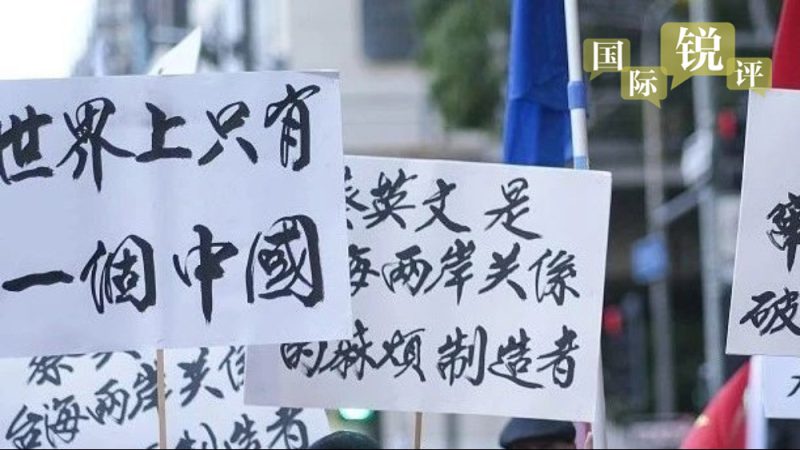 国际锐评
世界上只有
一個中國
英文是
海两岸关係
的麻煩制造者
台海两岸关係
制造者
破